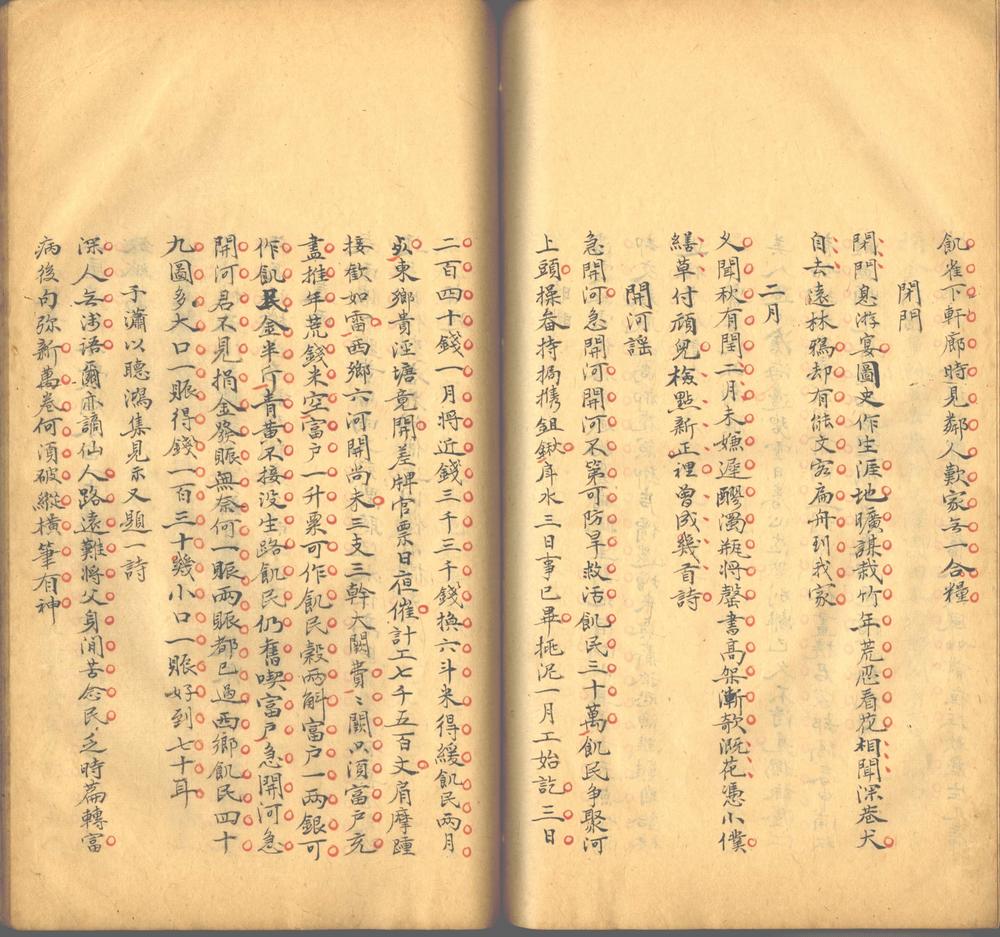 飢雀下軒廊時見鄰人歎家無一合糧
閉門
閉門息游宴圖史作生涯地曠謀栽竹年荒忍看花相聞深巷犬
自去遠林鴉却有能文客扁舟到我家
二月
又聞秋有閏二月未嫌遲醪濁瓶將罄書高架漸欹溉花憑小僕
繕草付頑兒檢點新正裡曾成幾首詩
開河謡
急開河急開河開河不第可防旱救活飢民三十萬飢民爭聚河
上頭操畚持挶携鉏鍬戽水三日事已畢挑泥一月工始訖三日
二百四十錢一月將近錢三千三千錢換六斗米得緩飢民兩月
死東鄉貴涇塘竟開差牌官票日夜催計工七千五百文肩摩踵
接歡如雷西鄉六河開尚未三支三幹大闕費〻闕只須富戶充
盡推年荒錢米空富戶一升粟可作飢民穀兩斛富戶一兩銀可
作飢民金半斤青黃不接没生路飢民仍舊喫富戶急開河急
開河君不見捐金發賑無奈何一賑兩賑都已過西鄉飢民四十
九圖多大口一賑得錢一百三十幾小口一賑好到七十耳
子瀟以聽鴻集見示又題一詩
深人無淺語爾亦謫仙人路遠難將父身閒苦念民乏時篇轉富
病後句弥新萬卷何須破縱橫筆有神